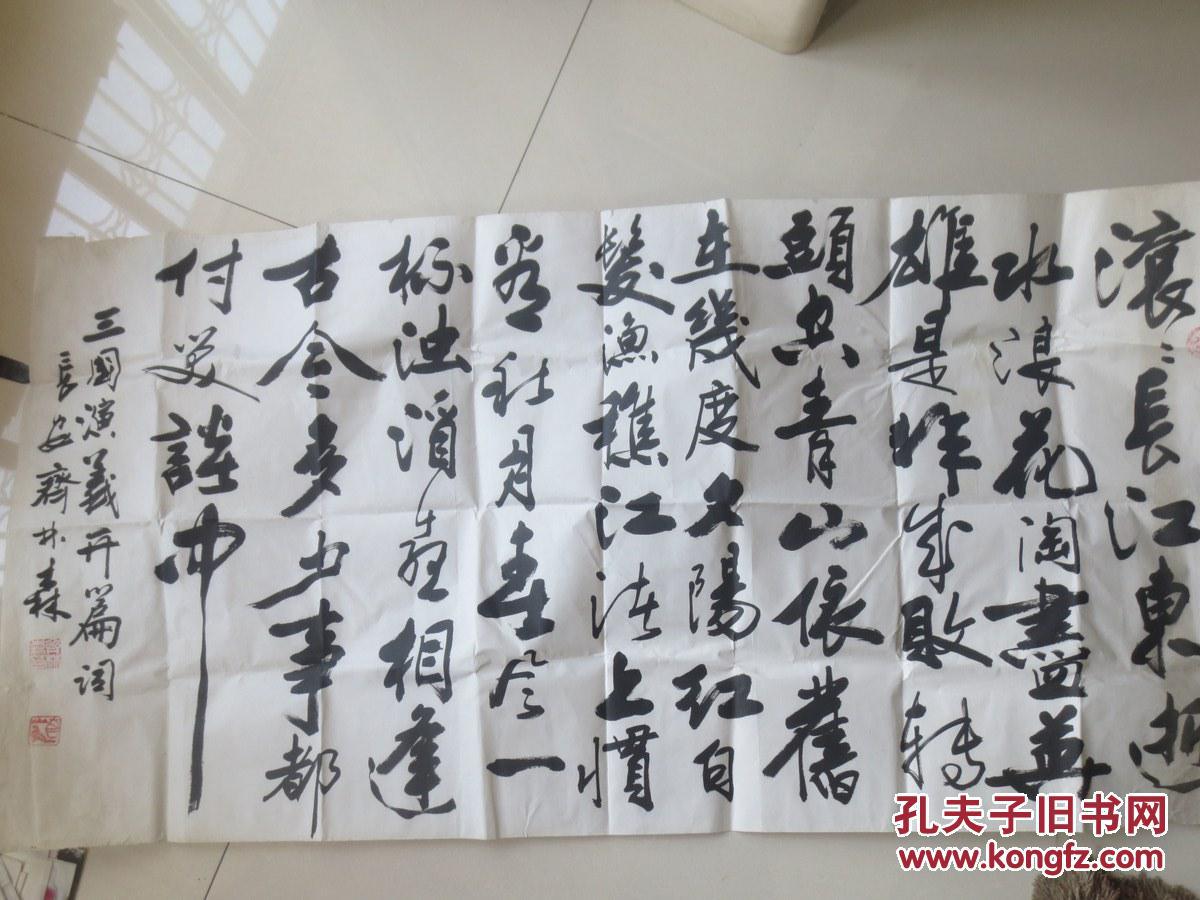 滚〻長江東逝
水浪花淘盡英
雄是非成敗轉
頭空青山依舊
在幾度夕陽红白
髮漁樵江渚上慣
看秋月春风一
杯浊酒喜相逢
古今多少事都
付笑談中
三國演義开篇词
長安齊林森
孔夫子旧书网
www.kongfz.com